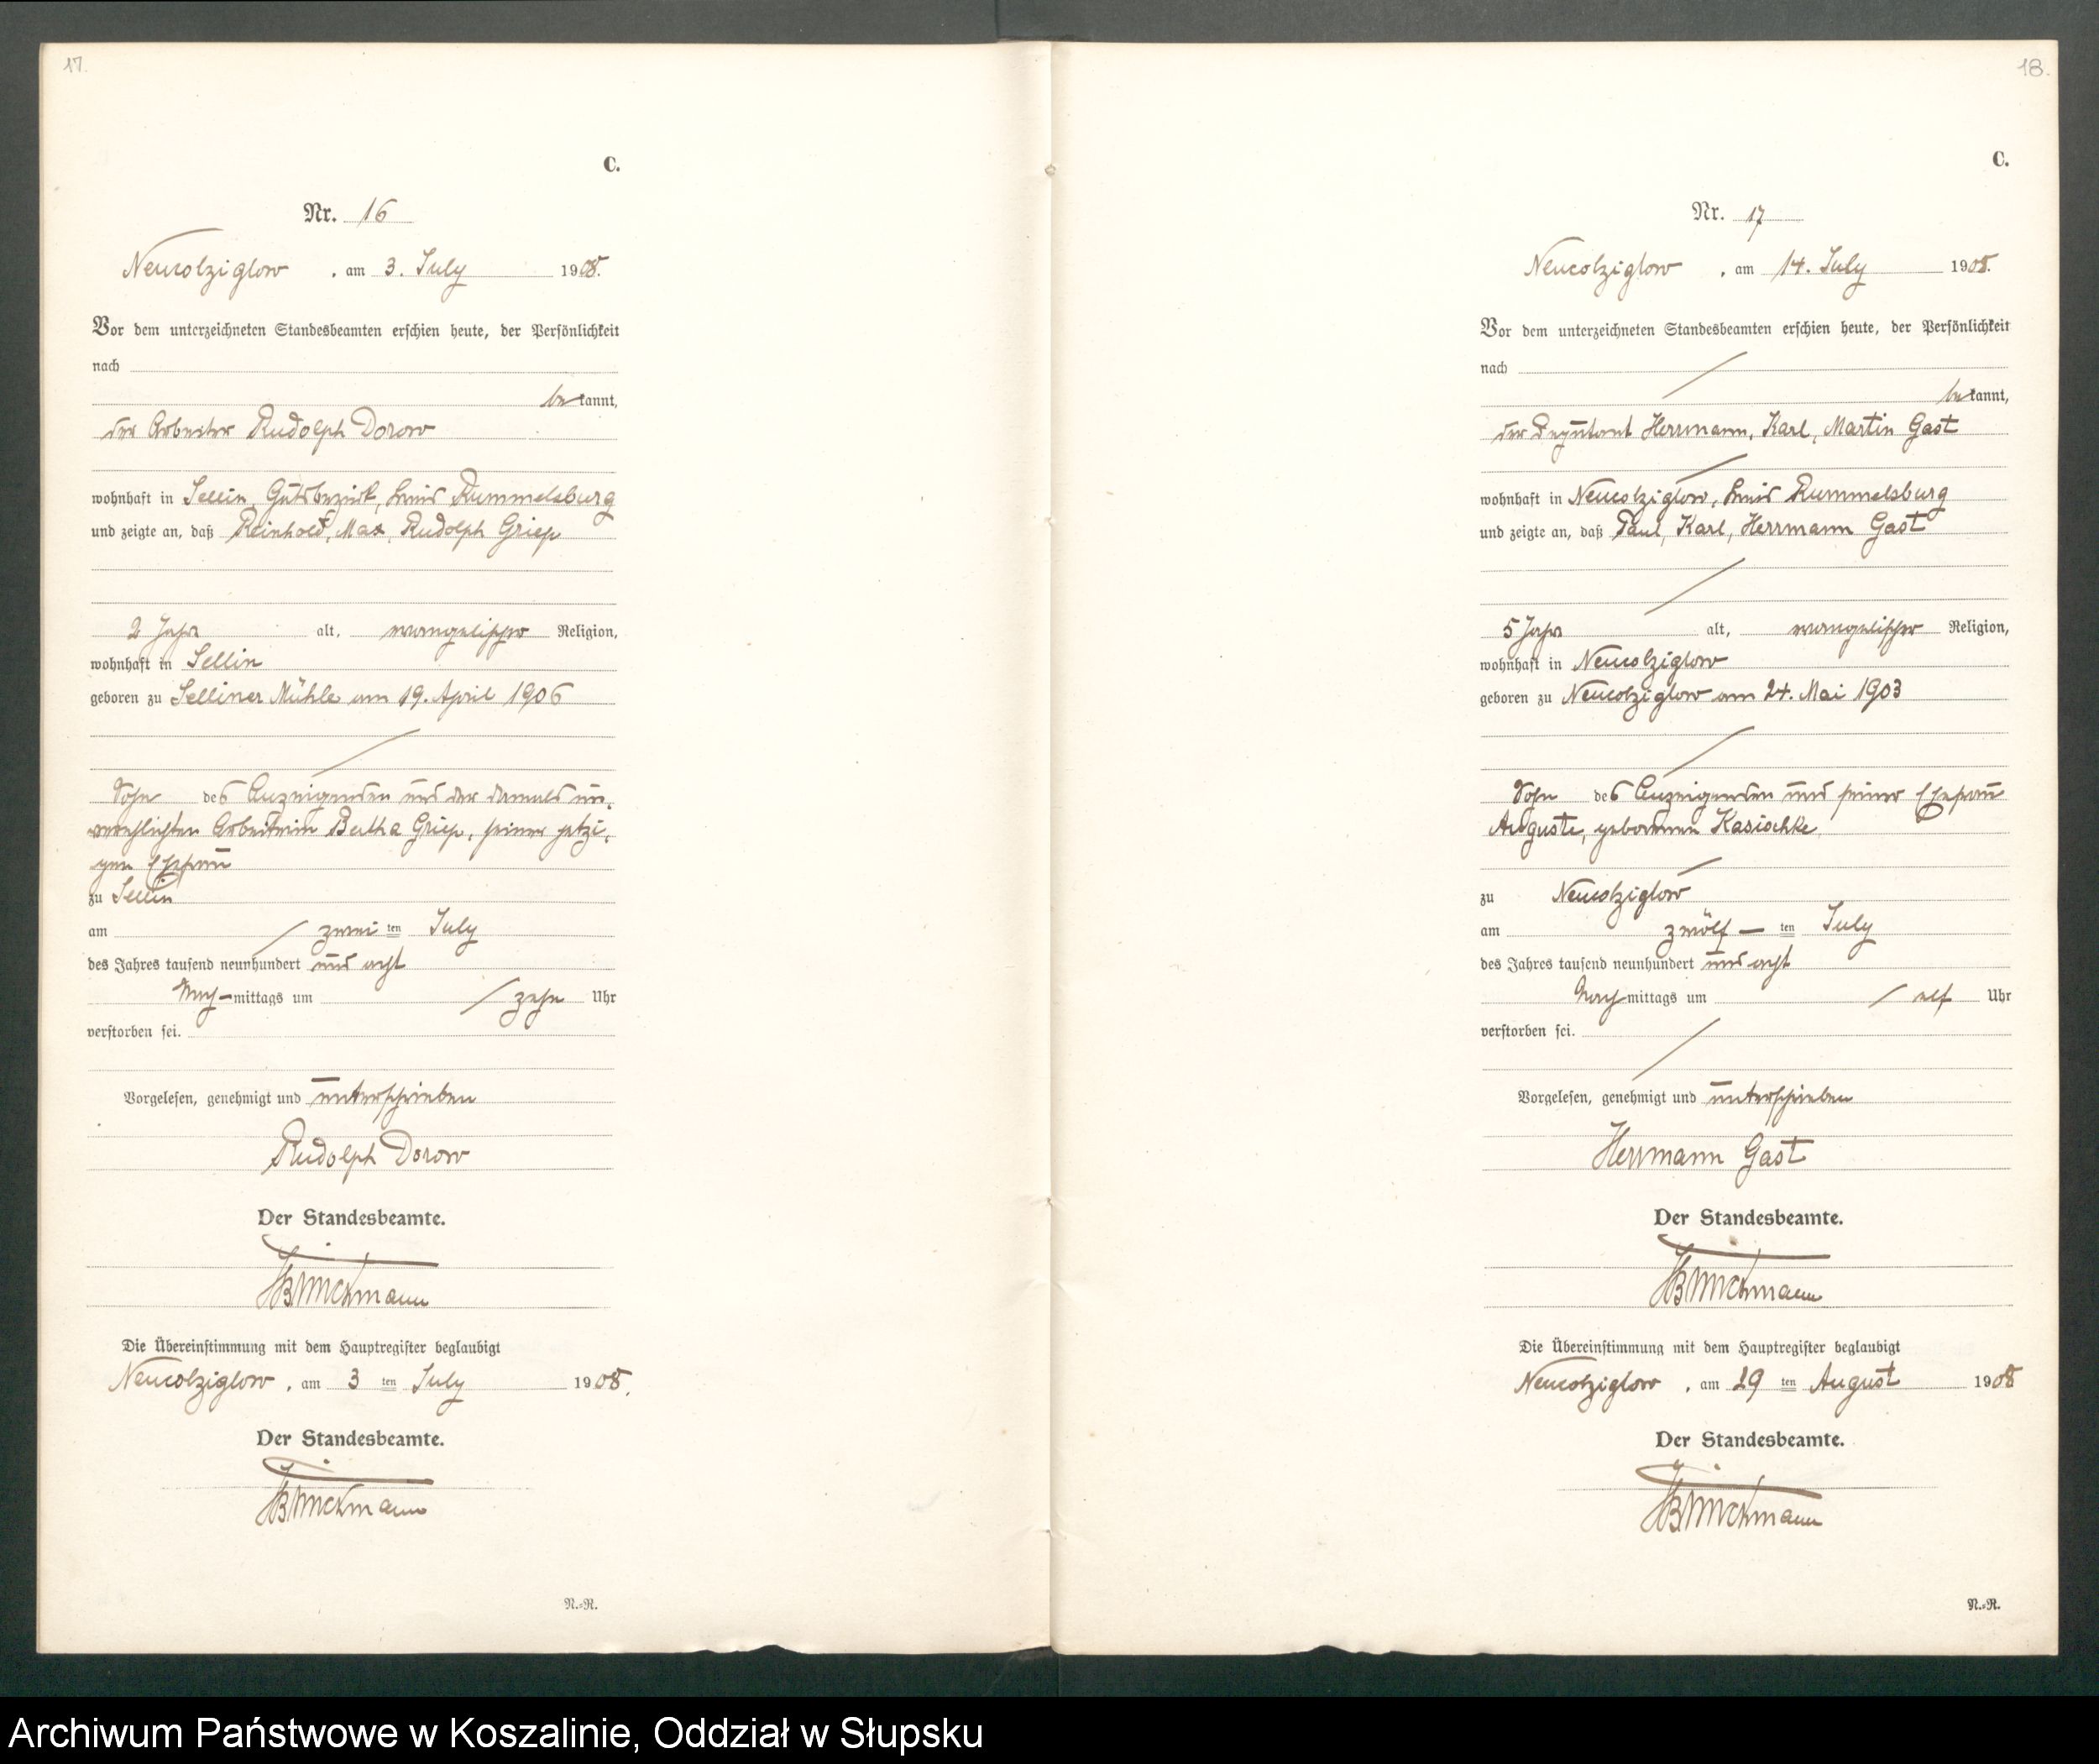 17.
C.
Nr. 16
Neucolziglow, am 3. July 1908.
Vor dem unterzeichneten Standesbeamten erschien heute, der Persönlichkeit
nach
bekannt,
der Arbeiter Rudolph Dorow
wohnhaft in Sellin, Gutsbezirk, Kreis Rummelsburg
und zeigte an, daß Reinhold, Max, Rudolph Griep
2 Jahr alt, evangelischer Religion,
wohnhaft in Sellin
geboren zu Selliner Mühle am 19. April 1906
Sohn des Anzeigenden und der damals un-
verehlichten Arbeiterin Bertha Griep, seiner jetzi-
gen Ehefrau
zu Sellin
am zwei ten July
des Jahres tausend neunhundert und acht
Nach-mittags um zehn Uhr
verstorben sei.
Vorgelesen, genehmigt und unterschrieben
Rudolph Dorow
Der Standesbeamte.
Brinckmann
Die Übereinstimmung mit dem Hauptregister beglaubigt
Neucolziglow, am 3 ten July 1908.
Der Standesbeamte.
Brinckmann
N.-R.
18.
C.
Nr. 17
Neucolziglow, am 14. July 1908.
Vor dem unterzeichneten Standesbeamten erschien heute, der Persönlichkeit
nach
bekannt,
der Deputant Herrmann, Karl, Martin Gast
wohnhaft in Neucolziglow, Kreis Rummelsburg
und zeigte an, daß Paul, Karl, Herrmann Gast
5 Jahr alt, evangelischer Religion,
wohnhaft in Neucolziglow
geboren zu Neucolziglow am 24. Mai 1903
Sohn des Anzeigenden und seiner Ehefrau
Auguste, geborenen Kasischke
zu Neucolziglow
am zwölf ten July
des Jahres tausend neunhundert und acht
Nachmittags um elf Uhr
verstorben sei.
Vorgelesen, genehmigt und unterschrieben
Herrmann Gast
Der Standesbeamte.
Brinckmann
Die Übereinstimmung mit dem Hauptregister beglaubigt
Neucolziglow, am 29 ten August 1908
Der Standesbeamte.
Brinckmann
N.-R.
Archiwum Państwowe w Koszalinie, Oddział w Słupsku